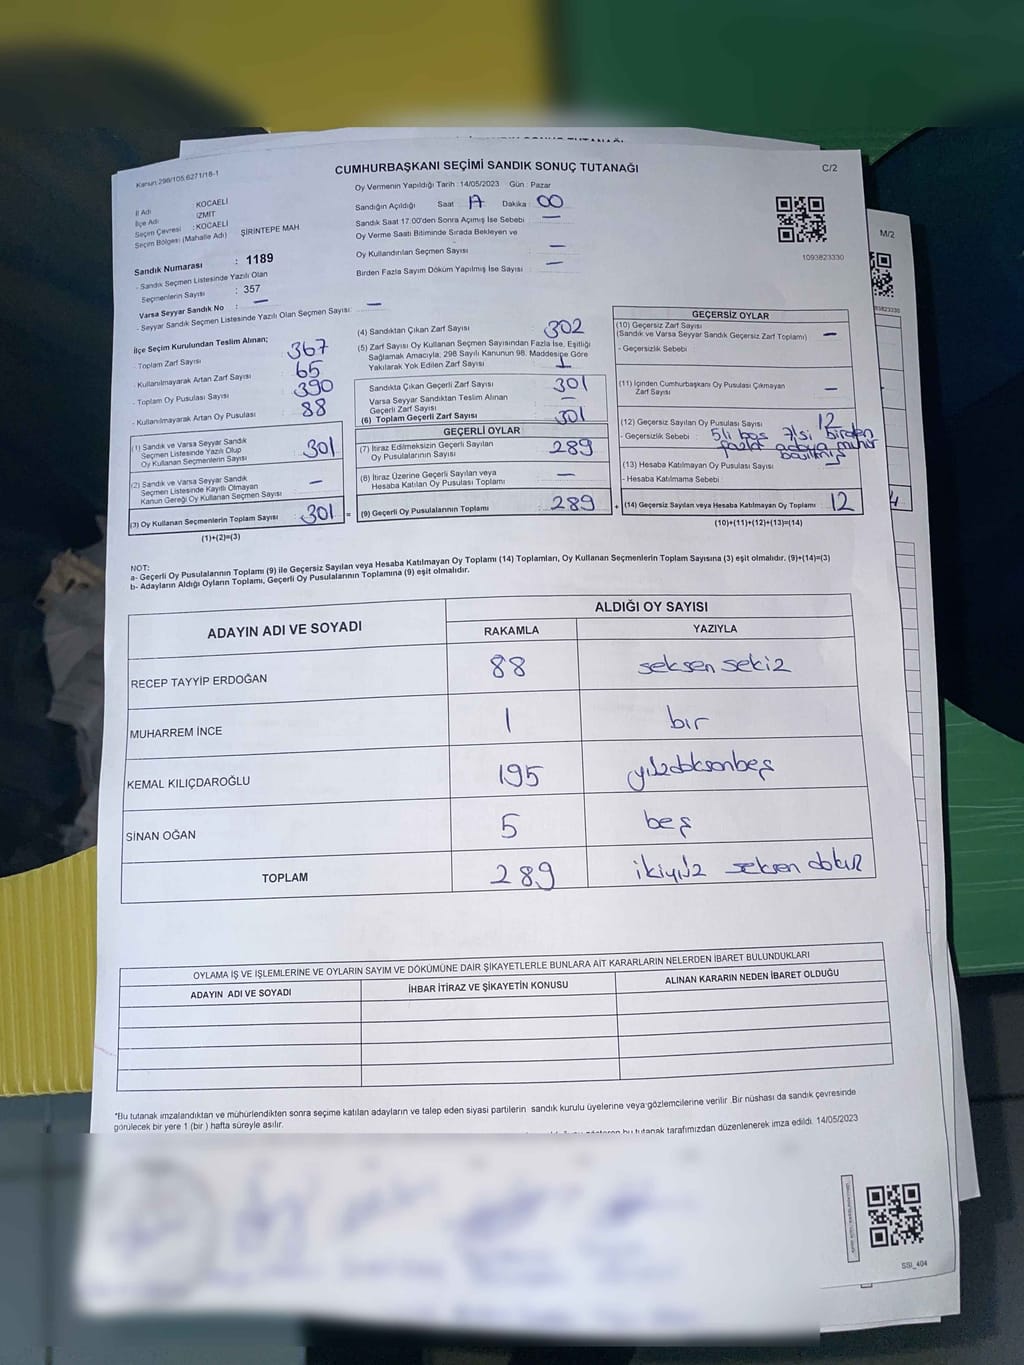 CUMHURBAŞKANI SEÇİMİ SANDIK SONUÇ TUTANAĞI
C/2
Kanun:298/105,6271/18-1
Oy Vermenin Yapıldığı Tarih :14/05/2023 Gün : Pazar
İl Adı KOCAELİ
İlçe Adı İZMİT
Seçim Çevresi : KOCAELİ
Seçim Bölgesi (Mahalle Adı) ŞİRİNTEPE MAH
Sandığın Açıldığı Saat Dakika : 00
Sandık Saat 17:00'den Sonra Açımış İse Sebebi —
Oy Verme Saati Bitiminde Sırada Bekleyen ve
Oy Kullandırılan Seçmen Sayısı —
Birden Fazla Sayım Döküm Yapılmış İse Sayısı —
1093823330
M/2
Sandık Numarası : 1189
- Sandık Seçmen Listesinde Yazılı Olan
Seçmenlerin Sayısı : 357
Varsa Seyyar Sandık No : —
- Seyyar Sandık Seçmen Listesinde Yazılı Olan Seçmen Sayısı: —
İlçe Seçim Kurulundan Teslim Alınan;
- Toplam Zarf Sayısı 367
- Kullanılmayarak Artan Zarf Sayısı 65
- Toplam Oy Pusulası 390
- Kullanılmayarak Artan Oy Pusulası 88
(1) Sandık ve Varsa Seyyar Sandık
Seçmen Listesinde Yazılı Olup
Oy Kullanan Seçmenlerin Sayısı 301
(2) Sandık ve Varsa Seyyar Sandık
Seçmen Listesinde Kayıtlı Olmayan
Kanun Gereği Oy Kullanan Seçmen Sayısı —
(3) Oy Kullanan Seçmenlerin Toplam Sayısı 301 =
(1)+(2)=(3)
(4) Sandıktan Çıkan Zarf Sayısı : 302
(5) Zarf Sayısı Oy Kullanan Seçmen Sayısından Fazla İse, Eşitliği
Sağlamak Amacıyla; 298 Sayılı Kanunun 98. Maddesine Göre
Yakılarak Yok Edilen Zarf Sayısı : 1
Sandıkta Çıkan Geçerli Zarf Sayısı : 301
Varsa Seyyar Sandıktan Teslim Alınan
Geçerli Zarf Sayısı —
(6) Toplam Geçerli Zarf Sayısı : 301
GEÇERLİ OYLAR
(7) İtiraz Edilmeksizin Geçerli Sayılan
Oy Pusulalarının Sayısı : 289
(8) İtiraz Üzerine Geçerli Sayılan veya
Hesaba Katılan Oy Pusulası Toplamı —
(9) Geçerli Oy Pusulalarının Toplamı : 289 +
GEÇERSİZ OYLAR
(10) Geçersiz Zarf Sayısı
(Sandık ve Varsa Seyyar Sandık Geçersiz Zarf Toplamı) : —
- Geçersizlik Sebebi :
(11) İçinden Cumhurbaşkanı Oy Pusulası Çıkmayan
Zarf Sayısı : —
(12) Geçersiz Sayılan Oy Pusulası Sayısı : 12
- Geçersizlik Sebebi : 5'li boş 7'si birden
fazla adaya mühür
basılmış
(13) Hesaba Katılmayan Oy Pusulası Sayısı
- Hesaba Katılmama Sebebi :
(14) Geçersiz Sayılan veya Hesaba Katılmayan Oy Toplamı : 12
(10)+(11)+(12)+(13)=(14)
NOT:
a- Geçerli Oy Pusulalarının Toplamı (9) ile Geçersiz Sayılan veya Hesaba Katılmayan Oy Toplamı (14) Toplamları, Oy Kullanan Seçmenlerin Toplam Sayısına (3) eşit olmalıdır. (9)+(14)=(3)
b- Adayların Aldığı Oyların Toplamı, Geçerli Oy Pusulalarının Toplamına (9) eşit olmalıdır.
ADAYIN ADI VE SOYADI
ALDIĞI OY SAYISI
RAKAMLA YAZIYLA
RECEP TAYYİP ERDOĞAN 88 seksen sekiz
MUHARREM İNCE 1 bir
KEMAL KILIÇDAROĞLU 195 yüzdoksanbeş
SİNAN OĞAN 5 beş
TOPLAM 289 ikiyüz seksen dokuz
OYLAMA İŞ VE İŞLEMLERİNE VE OYLARIN SAYIM VE DÖKÜMÜNE DAİR ŞİKAYETLERLE BUNLARA AİT KARARLARIN NELERDEN İBARET BULUNDUKLARI
ADAYIN ADI VE SOYADI İHBAR İTİRAZ VE ŞİKAYETİN KONUSU ALINAN KARARIN NEDEN İBARET OLDUĞU
*Bu tutanak imzalandıktan ve mühürlendikten sonra seçime katılan adayların ve talep eden siyasi partilerin sandık kurulu üyelerine veya gözlemcilerine verilir .Bir nüshası da sandık çevresinde
görülecek bir yere 1 (bir ) hafta süreyle asılır.
bu tutanak tarafımızdan düzenlenerek imza edildi. 14/05/2023
SSI_404